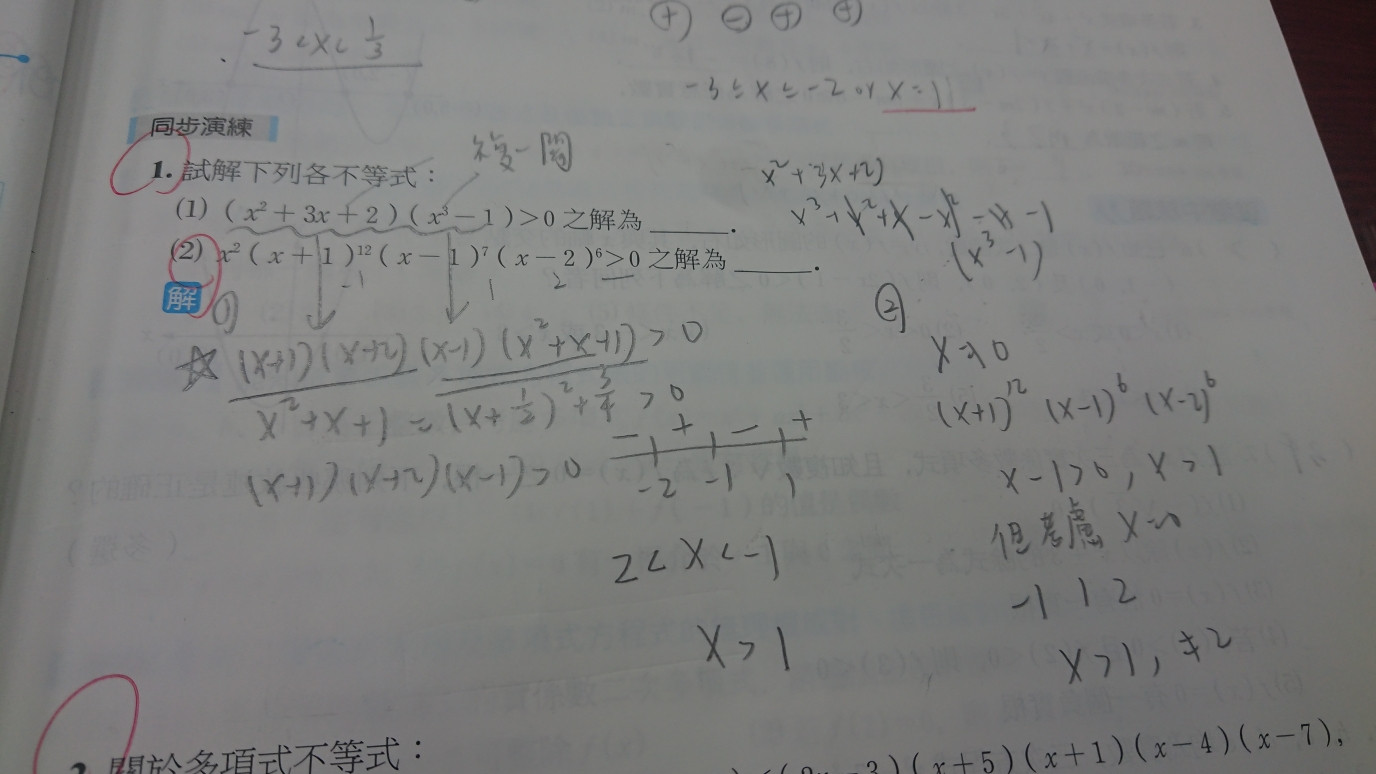 -3 < x < 1/3
⊕ ⊖ ⊕ ⊕
-3 ≤ x ≤ -2 or x = 1
同步演練
1. 試解下列各不等式：
(1) (x²+3x+2)(x³-1)>0 之解為 ______.
(2) x²(x+1)¹²(x-1)⁷(x-2)⁶>0 之解為 ______.
-1 1 2
解
x²+3x+2)
x³+x²+x-x²-x-1
(x³-1)
①
☆ (x+1)(x+2)(x-1)(x²+x+1) > 0
x²+x+1 = (x+1/2)²+3/4 > 0
(x+1)(x+2)(x-1)>0
- + - +
-2 -1 1
2 < x < -1
x > 1
②
(x+1)¹² (x-1)⁶ (x-2)⁶
x-1>0, x>1
但考慮 x=0
-1 1 2
x>1, ≠2
2. 關於多項式不等式：
(x+5)(x+1)(x-4)(x-7),